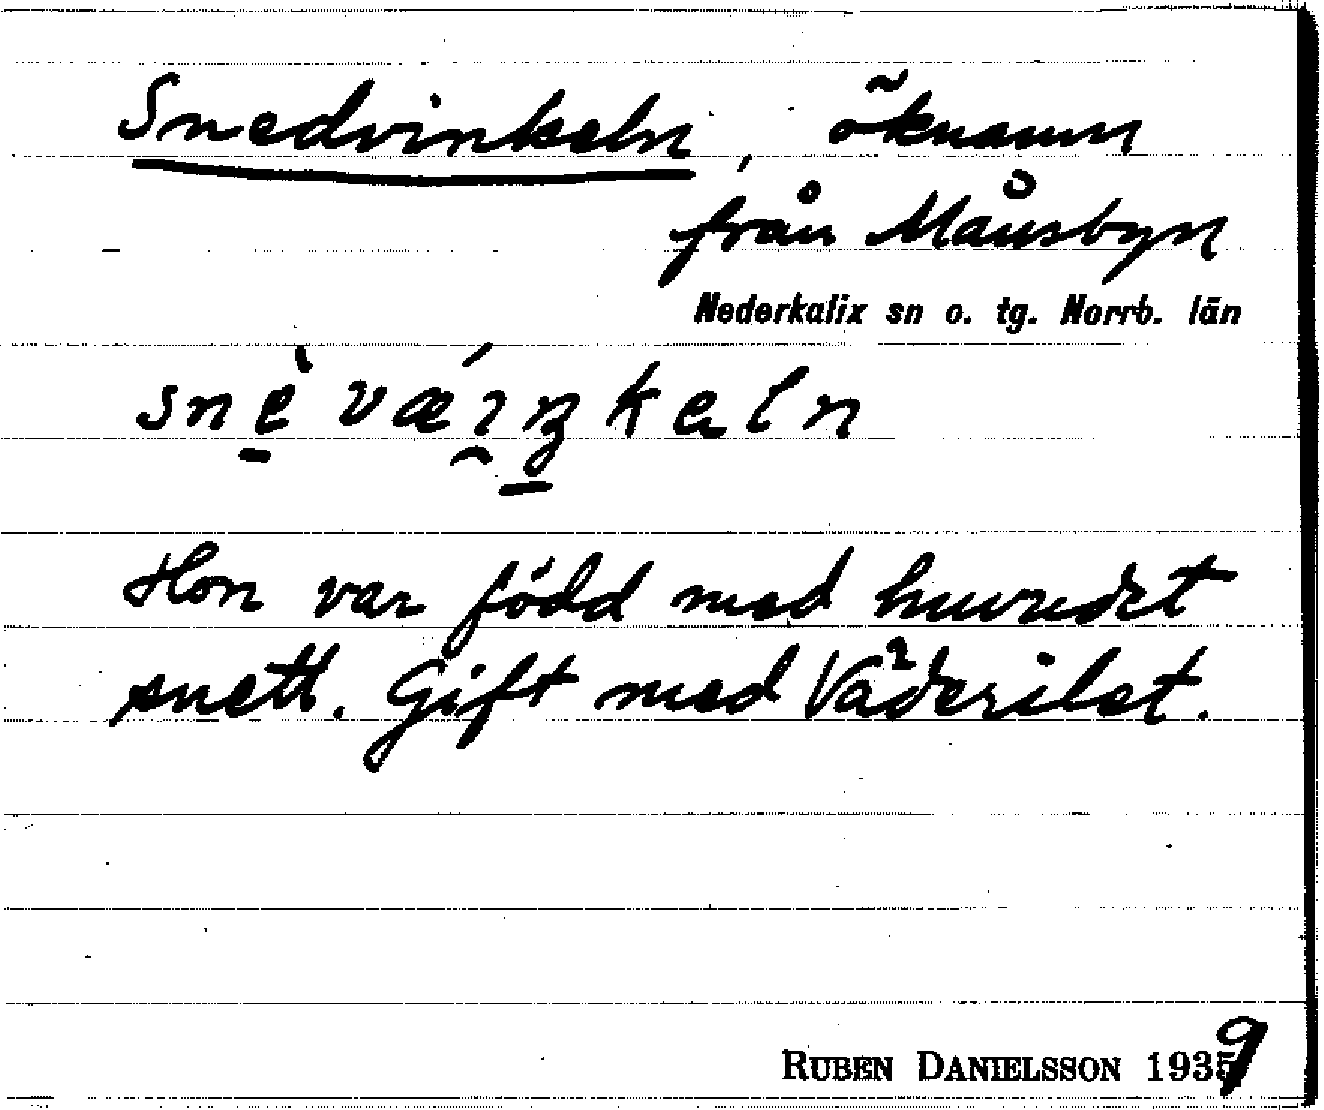 Snedvinkeln, öknamn
från Månsbyn
Nederkalix sn o. tg. Norrb. län
snè vǽıŋkəln
Hon var född med huvudet
snett. Gift med Väderilet.
RUBEN DANIELSSON 1939